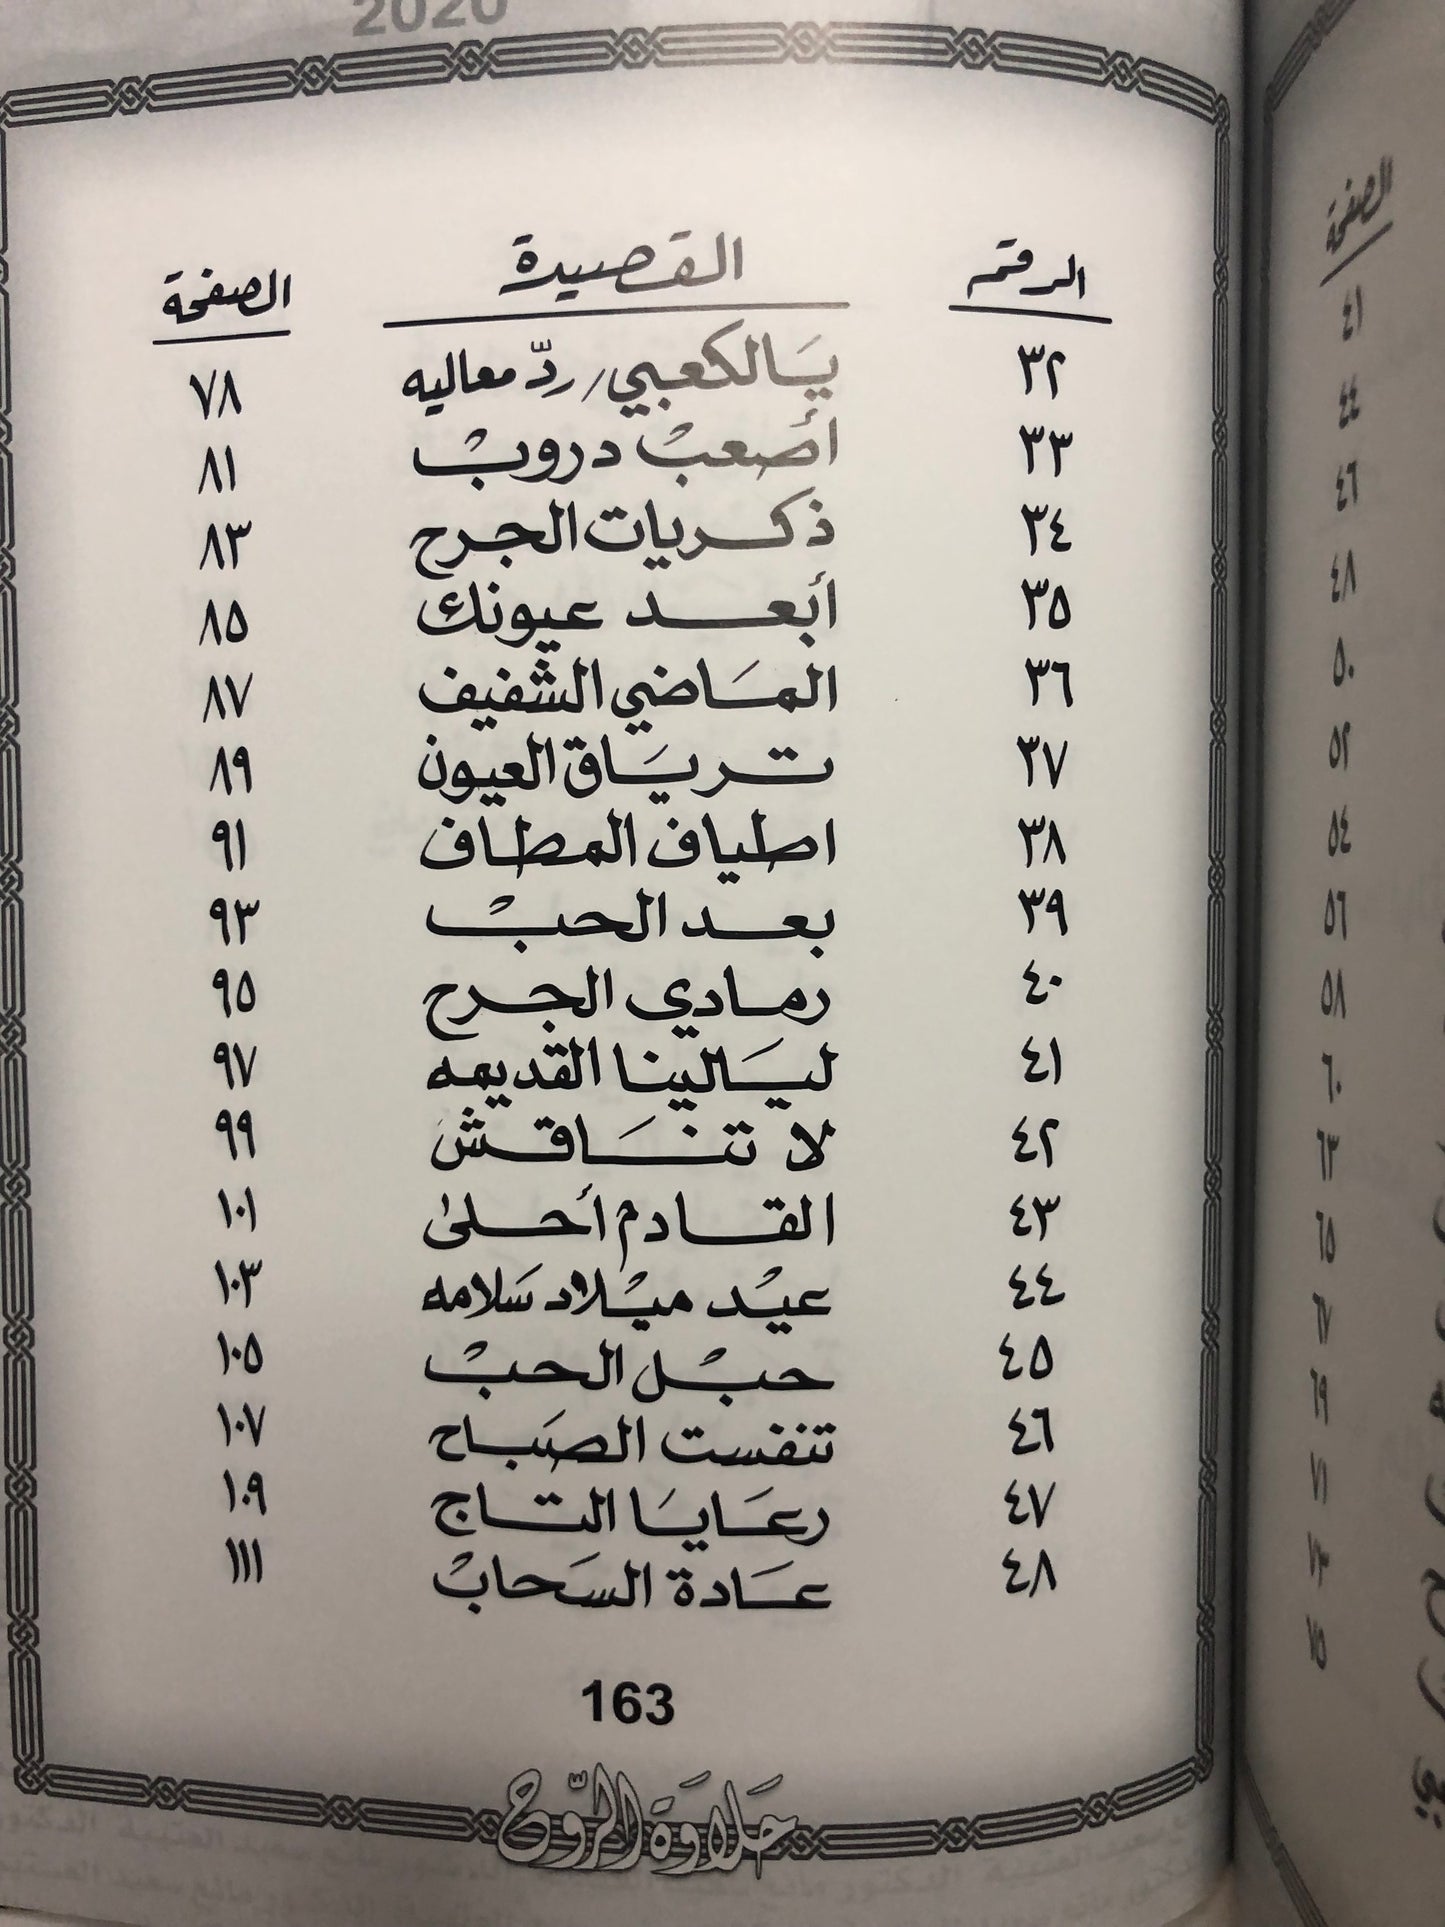 2020
الرقم القصيدة الصفحة
٣٢ يَالكعبي / ردّ معاليه ٧٨
٣٣ أصعبْ دروبْ ٨١
٣٤ ذكريات الجرح ٨٣
٣٥ أبعد عيونك ٨٥
٣٦ المَاضي الشفيف ٨٧
٣٧ تريَاق العيون ٨٩
٣٨ اطياف المطاف ٩١
٣٩ بعد الحبْ ٩٣
٤٠ رمادي الجرح ٩٥
٤١ ليَالينا القديمه ٩٧
٤٢ لا تنَاقش ٩٩
٤٣ القادم أحلىٰ ١٠١
٤٤ عيْد ميْلاد سَلامه ١٠٣
٤٥ حبْل الحبْ ١٠٥
٤٦ تنفست الصَباح ١٠٧
٤٧ رعَايَا التاج ١٠٩
٤٨ عَادة السَحابْ ١١١
163
حَلاوَة الرّوح
الصفحة
٤١
٤٤
٤٦
٤٨
٥٠
٥٢
٥٤
٥٦
٥٨
٦٠
٦٣
٦٥
٦٧
٦٩
٧١
٧٣
٧٥